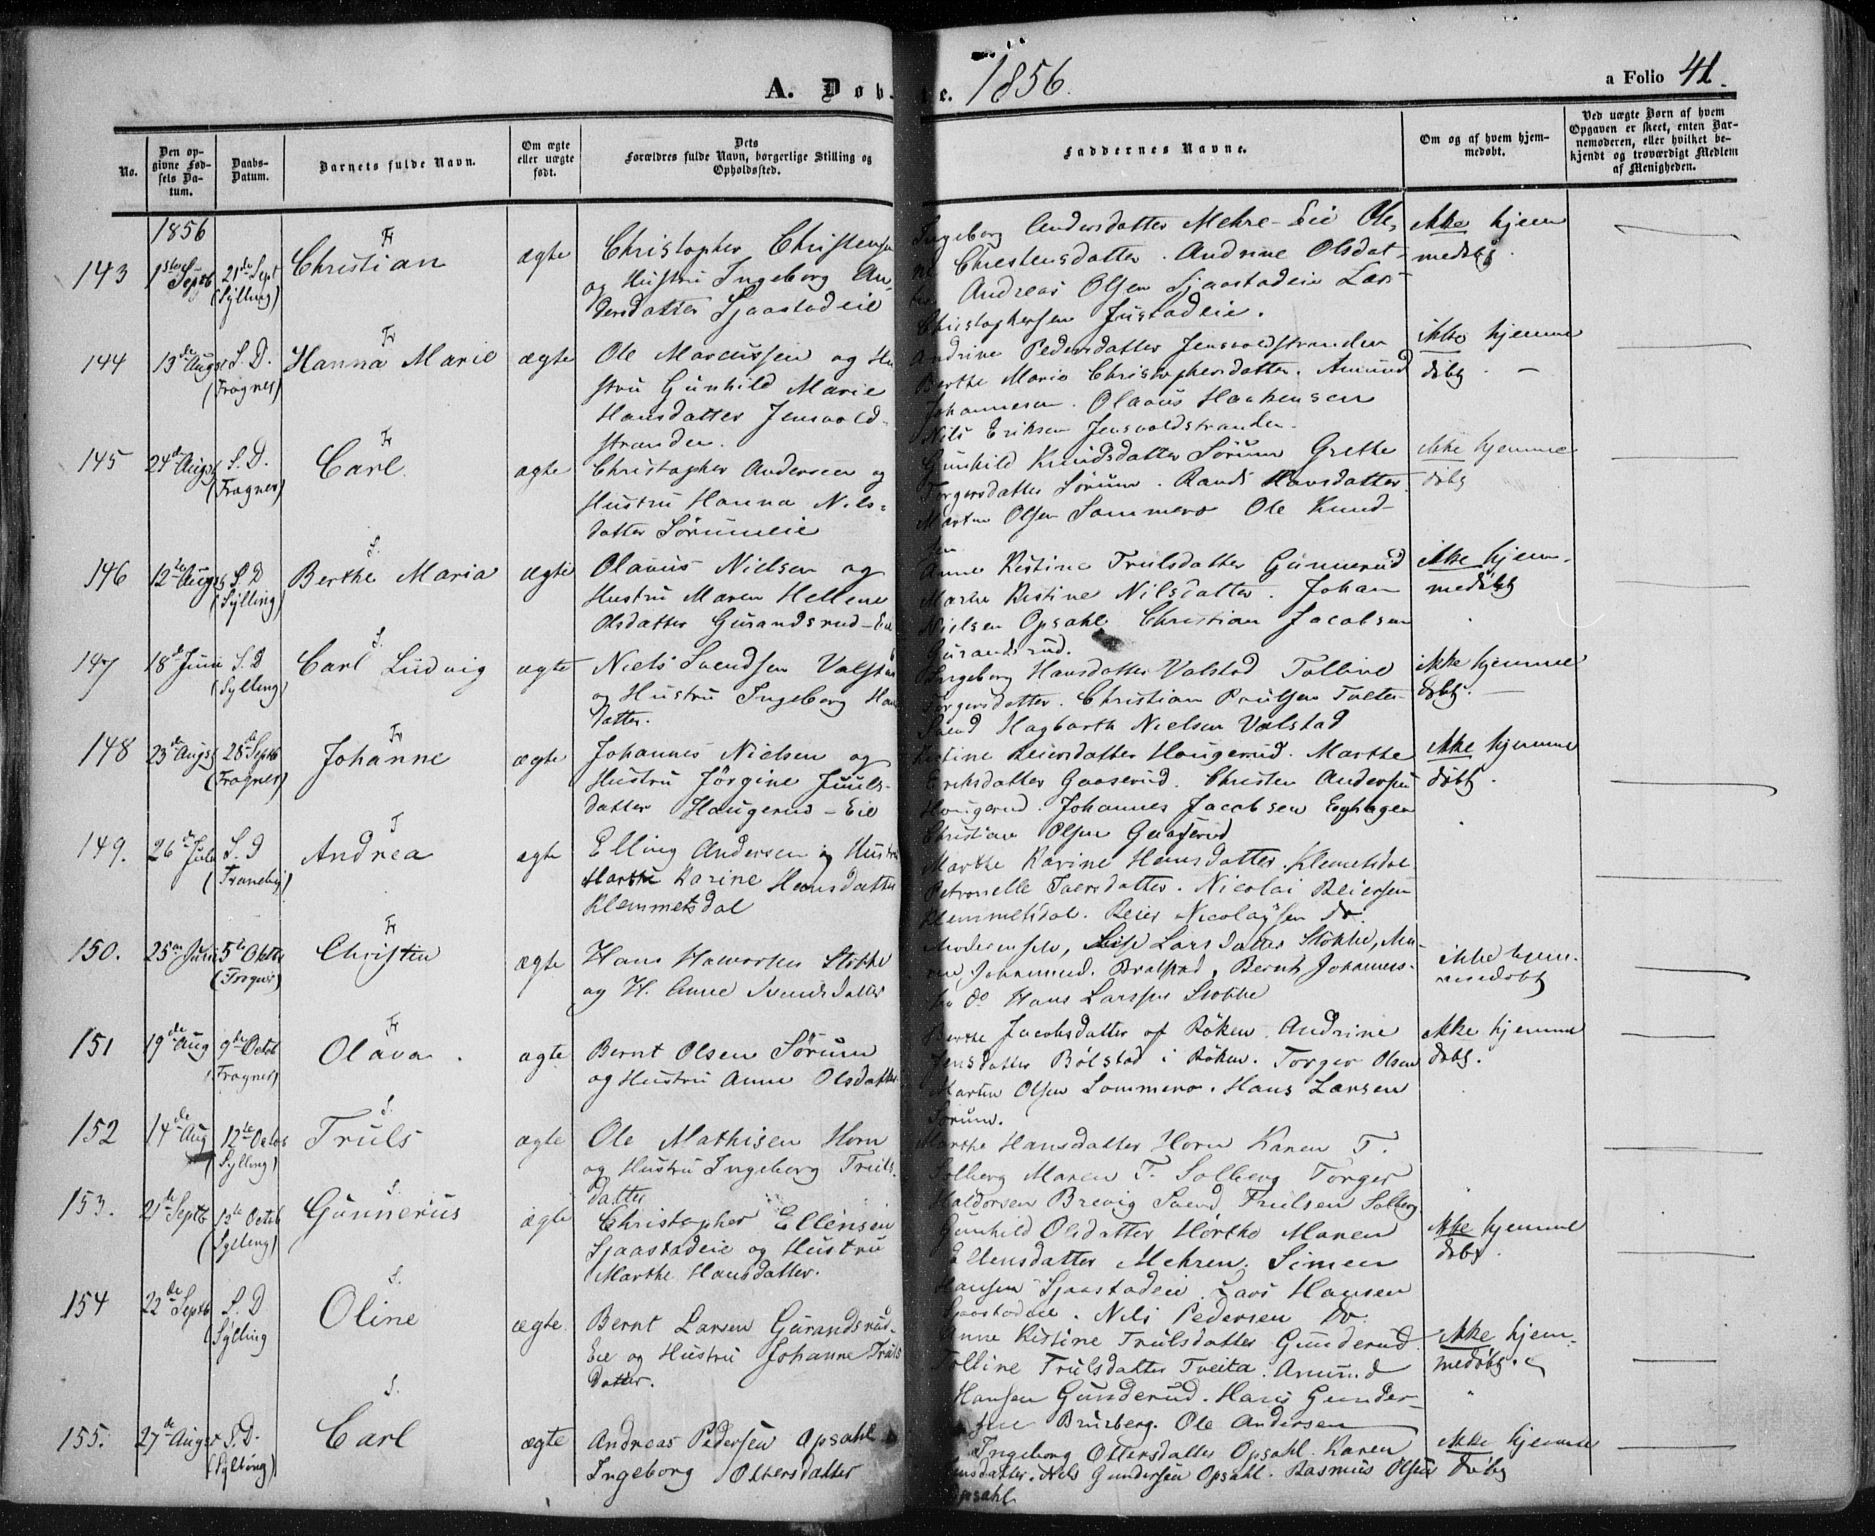 A. Døb-
te. 1856.
a Folio 41.
No.
Den op-
givne Fød-
sels Da-
tum.
Daabs-
Datum.
Barnets fulde Navn.
Om ægte
eller uægte
født.
Dets
Forældres fulde Navn, borgerlige Stilling og
Opholdssted.
Faddernes Navne.
Om og af hvem hjem-
medøbt.
Ved uægte Børn af hvem
Opgaven er skeet, enten Bar-
nemoderen, eller hvilket be-
kjendt og troværdigt Medlem
af Menigheden.
1856
143
1ste Septb
21de Sept
(Sylling)
Fr
Christian
ægte
Christopher Christensen
og Hustru Ingeborg An-
dersdatter Sjaastadeie
Ingeborg Andersdatter Mehre-Eie Ole,
Christensdatter. Andrine Olsdat-
Andreas Olsen Sjaastadeie Lars
Christophersen Justadeie.
ikke hjem
medøbt.
144
13de Augst
S. D.
(Frogner)
Fr
Hanna Marie
ægte
Ole Marcussen og Hu
stru Gunhild Marie
Hansdatter Jensvold-
stranden.
Andrine Pedersdatter Jensvoldstranden
Berthe Marie Christophersdatter. Amund
Johannesen. Olavus Haakensen
Nils Eriksen Jensvoldstranden.
ikke hjemme
døbt.
145
24de Augst
S. D.
(Frogner)
Fr
Carl
ægte
Christopher Andersen og
Hustru Hanna Nils-
datter Sørumeie
Gunhild Knudsdatter Sørum Grethe
Torgersdatter Sørum. Randi Hansdatter.
Martin Olsen Sommero Ole Knud-
sen
ikke hjemme
døbt
146
12te Augst
S. D
(Sylling)
S.
Berthe Maria
ægte
Olavus Nielsen og
Hustru Maren Hellene
Olsdatter Gurandsrud-Eie
Anne Kistine Trulsdatter Gunnerud
Marthe Kistine Nilsdatter. Johan
Nielsen Opsahl Christian Jacobsen
Gurandsrud.
ikke hjem-
medøbt
147
18de Juni
S. D
(Sylling)
S.
Carl Ludvig
ægte
Niels Svendsen Valstad
og Hustru Ingeborg Hans
datter.
Ingeborg Hansdatter Valstad Tolline
Torgersdatter. Christian Paulsen Tveter
Svend Hagbarth Nielsen Valstad
ikke hjemme
døbt.
148
23de Augst
28de Septb
(Frogner)
Fr
Johanne
ægte
Johannes Nielsen og
Hustru Jørgine Juuls-
datter Haugerud-Eie
Kistine Reiersdatter Haugerud. Marthe
Eriksdatter Gaaserud. Christen Andersen
Hougerud. Johannes Jacobsen Enghagen
Christian Olsen Gaaserud
ikke hjemme
døbt.
149.
26de Juli
S. D
(Tranebye)
T
Andrea
ægte
Elling Andersen og Hustru
Marthe Karine Hansdatter
Klemmetsdal
Marthe Karine Hansdatter. Klemetsdal
Petronelle Iversdatter. Nicolai Reiersen
Klemmetsdal. Reier Nicolaysen Do.
150.
25de Juni
5te Oktbr
(Frogner)
Fr
Christen
ægte
Hans Stokke
og H. Anne Svendsdatter
Moderen selv, Lise Larsdatter Stokke, Ma-
Bratstad, Bernt Johannes-
sen do Hans Larssen Stokke
ikke hjem-
medøbt
151
19de Aug
9de Octob
(Frogner)
Fr
Olava.
ægte
Bernt Olsen Sørum
og Hustru Anne Olsdatter
Berthe Jacobsdatter af Røken. Andrine
Jensdatter Bølstad i Røken. Torger Olsen
Martin Olsen Sommero. Hans Larsen
Sørum.
ikke hjemme
døbt.
152
14de Aug
12te Octob
(Sylling)
S.
Truls
ægte
Ole Mathisen Horn
og Hustru Ingeborg Truls-
datter
Marthe Hansdatter Horn Karen T.
Solberg Maren T. Solberg Torger
Haldorsen Brevig Svend Trulsen Solberg
153.
21de Septb
13de Octob
(Sylling)
S.
Gunnerius
ægte
Christopher Ellensen
Sjaastadeie og Hustru
Marthe Hansdatter.
Gunhild Olsdatter Hørtho Maren
Ellensdatter Mehren. Simen
Hansen Sjaastadeie Lars Hansen
Sjaastadeie. Nels Pedersen Do.
ikke hjemme
døbt.
154
22de Septb
S. D.
(Sylling
S.
Oline
ægte.
Bernt Larsen Gurandsrud-
Eie og Hustru Johanne Truls
Datter.
Anne Kistine Trulsdatter Gunderud
Tolline Trulsdatter Tveita. Amund
Hansen Gunderud. Hans Gunder-
sen Brusberg. Ole Andersen
ikke hjem-
medøbt.
155.
27de Augst
S. D.
(Sylling)
S.
Carl
ægte
Andreas Pedersen Opsahl
Ingeborg Ottersdatter
Ingeborg Ottersdatter Opsahl. Karen
Nels Gundersen Opsahl. Rasmus Olsen
Opsahl
ikke hjemme
døbt